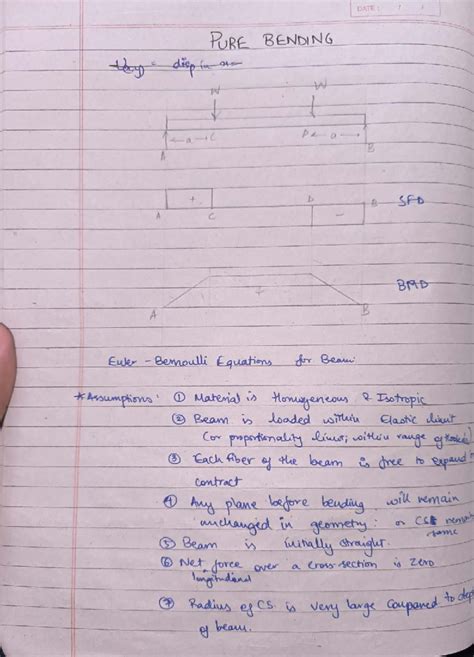 DATE: / /
PURE BENDING
W W
← a → C D ← a →
A B
+
A C D B SFD
-
+ BMD
A B
Euler - Bernoulli Equations for Beam
* Assumptions: ① Material is Homogeneous & Isotropic
② Beam is loaded within Elastic limit
(or proportionality limit; within range of
③ Each fiber of the beam is free to expand
contract
④ Any plane before bending will remain
unchanged in geometry: or CS
same
⑤ Beam is initially straight.
⑥ Net force over a cross-section is zero
longitudinal
⑦ Radius of CS. is very large Compared to
of beam.